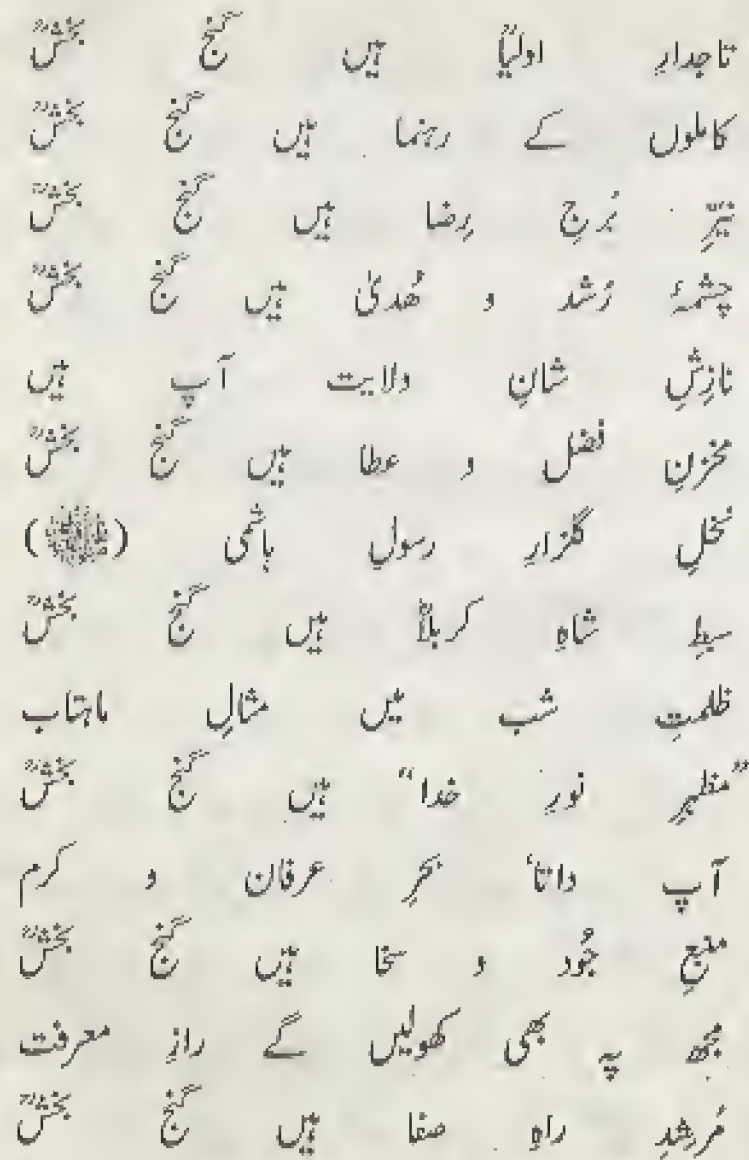 تاجدارِ اولیاؒ ہیں گنج بخشؒ
کاملوں کے رہنما ہیں گنج بخشؒ
نیّرِ بُرجِ رِضا ہیں گنج بخشؒ
چشمۂ رُشد و ھُدیٰ ہیں گنج بخشؒ
نازِشِ شانِ ولایت آپ ہیں
مخزنِ فضل و عطا ہیں گنج بخشؒ
نخلِ گلزارِ رسولِ ہاشمی (ﷺ)
سبطِ شاہِ کربلاؓ ہیں گنج بخشؒ
ظلمتِ شب میں مثالِ ماہتاب
”مظہرِ نورِ خدا“ ہیں گنج بخشؒ
آپ داتا، بحرِ عرفان و کرم
منبعِ جُود و سخا ہیں گنج بخشؒ
مجھ پہ بھی کھولیں گے رازِ معرفت
مُرشدِ راہِ صفا ہیں گنج بخشؒ